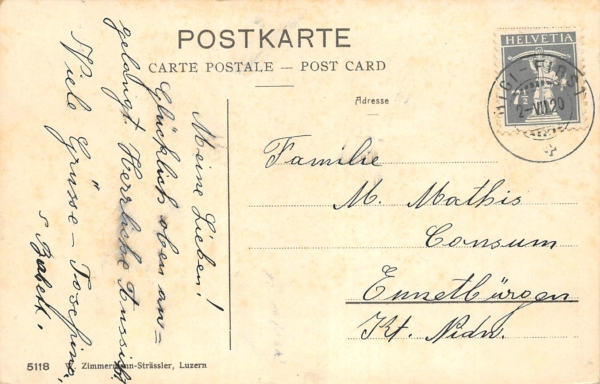 POSTKARTE
CARTE POSTALE — POST CARD
Adresse
HELVETIA
7½
RIGI-FIRST
2-VII.20
Meine Lieben!
Glücklich oben an=
gelangt Herrliche Aussicht
Viele Grüsse - Josephina,
Familie
M. Mathis
Consum
Ennetbürgen
Kt. Nidw.
5118
Zimmermann-Strässler, Luzern